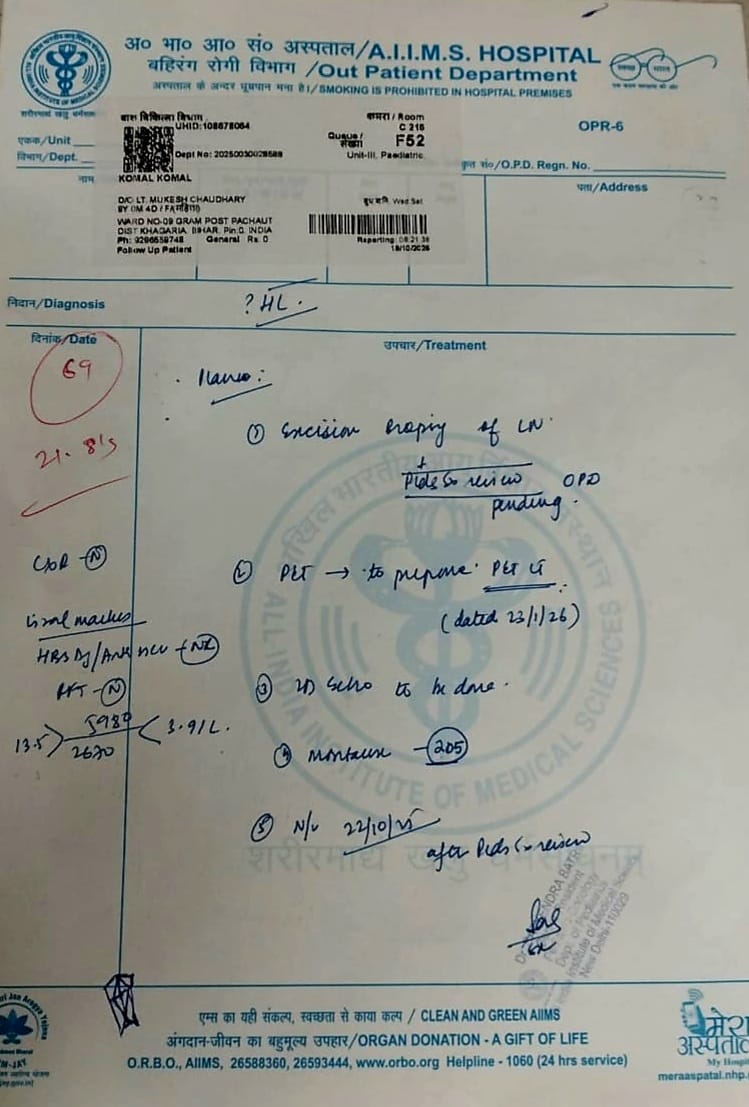 अ० भा० आ० सं० अस्पताल/A.I.I.M.S. HOSPITAL
बहिरंग रोगी विभाग /Out Patient Department
अस्पताल के अन्दर धूम्रपान मना है।/SMOKING IS PROHIBITED IN HOSPITAL PREMISES
शरीरमाद्यं खलु धर्मसाधनम्
OPR-6
एकक/Unit
विभाग/Dept.
बाल चिकित्सा विभाग
UHID:108678064
Dept No: 20250030028588
कमरा / Room
C 216
Queue /
संख्या
F52
Unit-III, Paediatric
कृत सं०/O.P.D. Regn. No.
नाम
KOMAL KOMAL
पता/Address
D/O LT. MUKESH CHAUDHARY
8Y 0M 4D / F
WARD NO-09 GRAM POST PACHAUT
DIST KHAGARIA, BIHAR, Pin:0, INDIA
Ph: 9296559748 General Rs 0
Follow Up Patient
Wed Sat
Reporting: 08:21:38
18/10/2025
निदान/Diagnosis
? HL.
दिनांक/Date
उपचार/Treatment
69
① Excision Biopsy of LN
review OPD
pending.
② PET → to prepone PET CT
(dated 23/1/26)
③ 2D Echo to be done.
④ Montoux - 205
⑤ N/v 22/10/25
after review
CXR - N
Viral marker
HBsAg/Anti HCV - NR
- N
13.5 > 5980 < 3.91L.
2630
Dept. of
New Delhi-110029
एम्स का यही संकल्प, स्वच्छता से काया कल्प / CLEAN AND GREEN AIIMS
अंगदान-जीवन का बहुमूल्य उपहार/ORGAN DONATION - A GIFT OF LIFE
O.R.B.O., AIIMS, 26588360, 26593444, www.orbo.org Helpline - 1060 (24 hrs service)
मेरा
अस्पताल
My Hospital
meraaspatal.nhp.